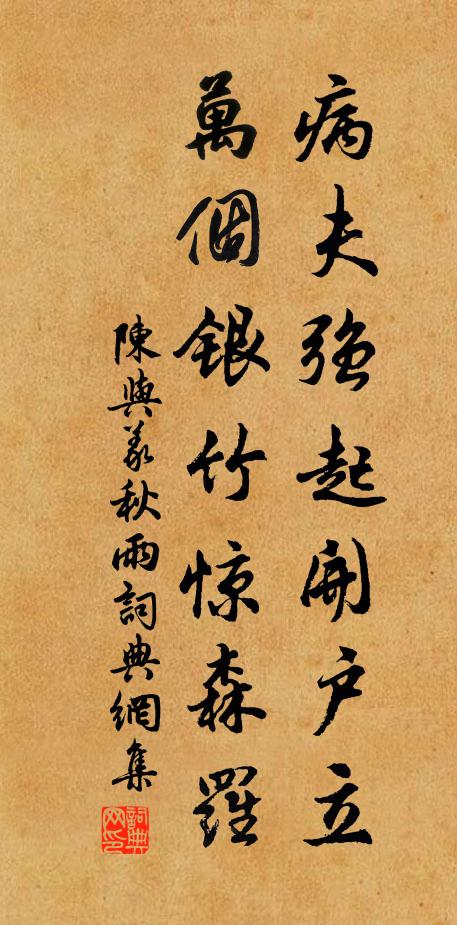 病夫強起開户立
萬個銀竹惊森羅
陳與義秋雨詞典網集
詞典网印